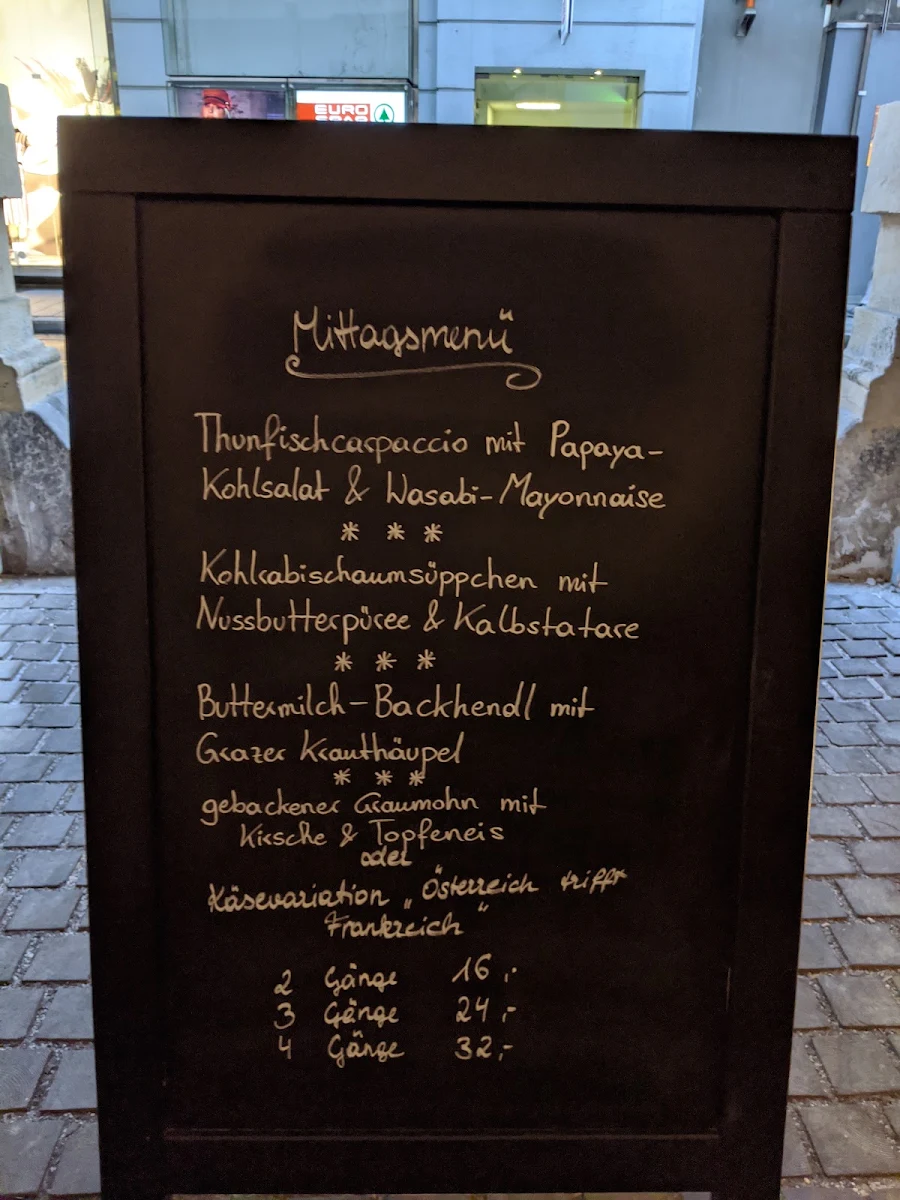 EURO
SPAR
Mittagsmenü
Thunfischcarpaccio mit Papaya-
Kohlsalat & Wasabi-Mayonnaise
* * *
Kohlrabischaumsüppchen mit
Nussbutterpüree & Kalbstatare
* * *
Buttermilch-Backhendl mit
Grazer Krauthäupel
* * *
gebackener Graumohn mit
Kirsche & Topfeneis
oder
Käsevariation „Österreich trifft
Frankreich"
2 Gänge 16,-
3 Gänge 24,-
4 Gänge 32,-